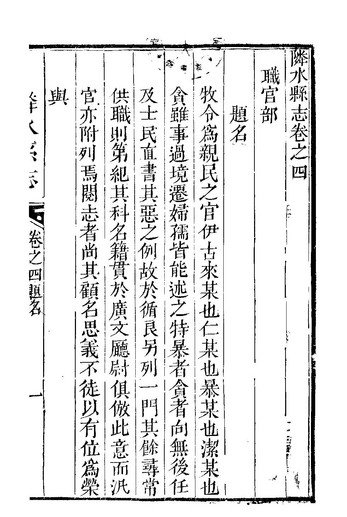 隣水縣志卷之四
職官部
題名
牧令爲親民之官伊古來某也仁某也暴某也潔某也
貪雖事過境遷婦孺皆能述之特暴者貪者向無後任
及士民直書其惡之例故於循良另列一門其餘尋常
供職則第紀其科名籍貫於廣文廳尉俱倣此意而汎
官亦附列焉閱志者尚其顧名思義不徒以有位爲榮
與
隣水縣志
卷之四題名
一